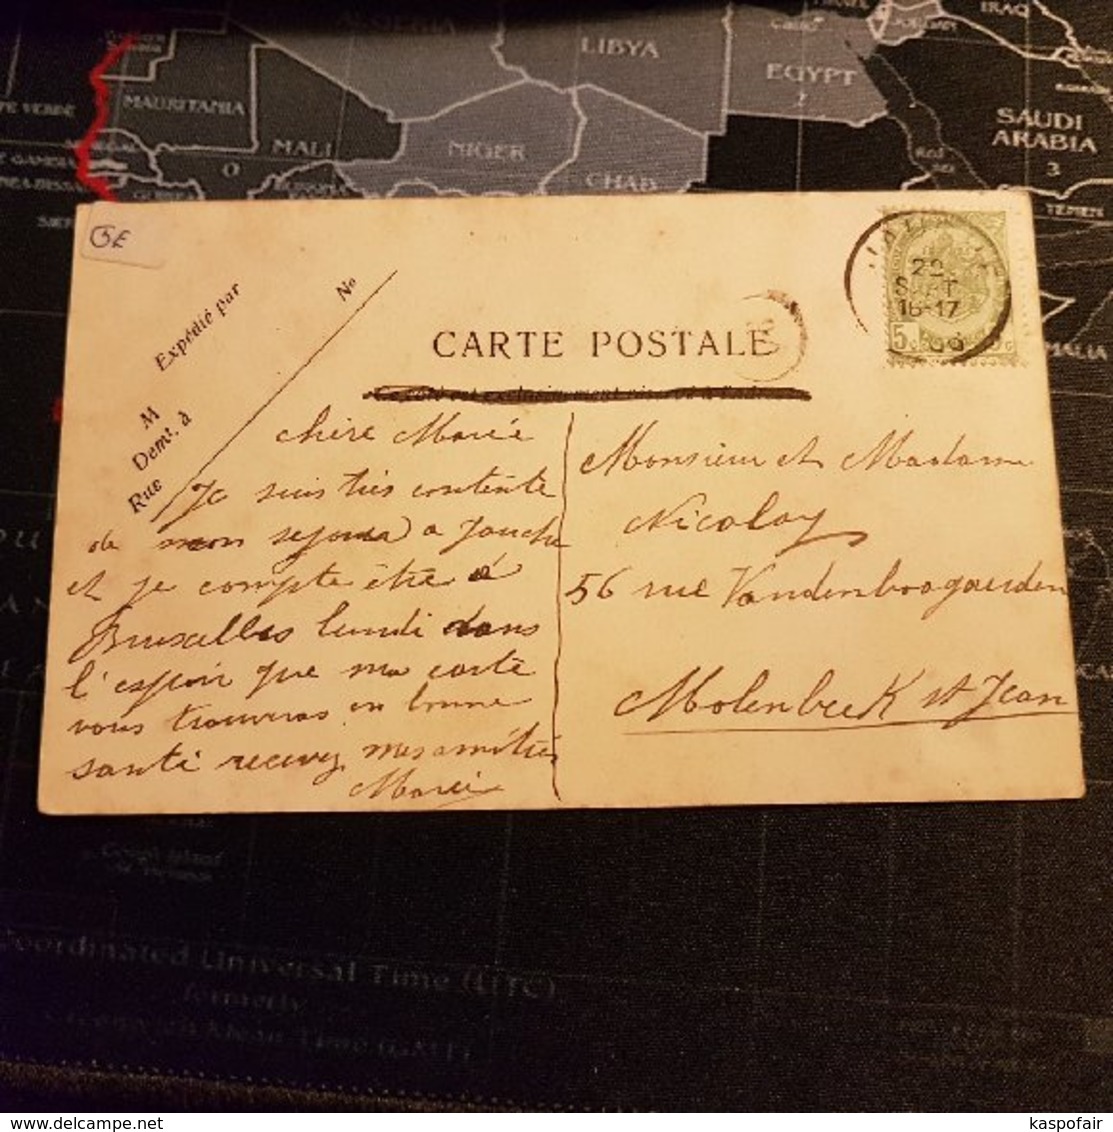 ALGERIA
LIBYA
EGYPT
2
IRAQ
MAURITANIA
MALI
0
NIGER
CHAD
SAUDI
ARABIA
3
YEMEN
Red
5E
Expédié par
No
M
Demt. à
Rue
CARTE POSTALE
22
SEPT
16-17
5c
5c
chère Marie
Je suis très contente
de mon sejour a Jauche
et je compte être à
Bruxelles lundi dans
l'espoir que ma carte
vous trouveras en bonne
santé recevez mes amitiés
Marie
Monsieur et Madame
Nicolay
56 rue Vandenboogaerden
Molenbeek st Jean
Coordinated Universal Time (UTC)
formerly
Greenwich Mean Time (GMT)
kaspofair